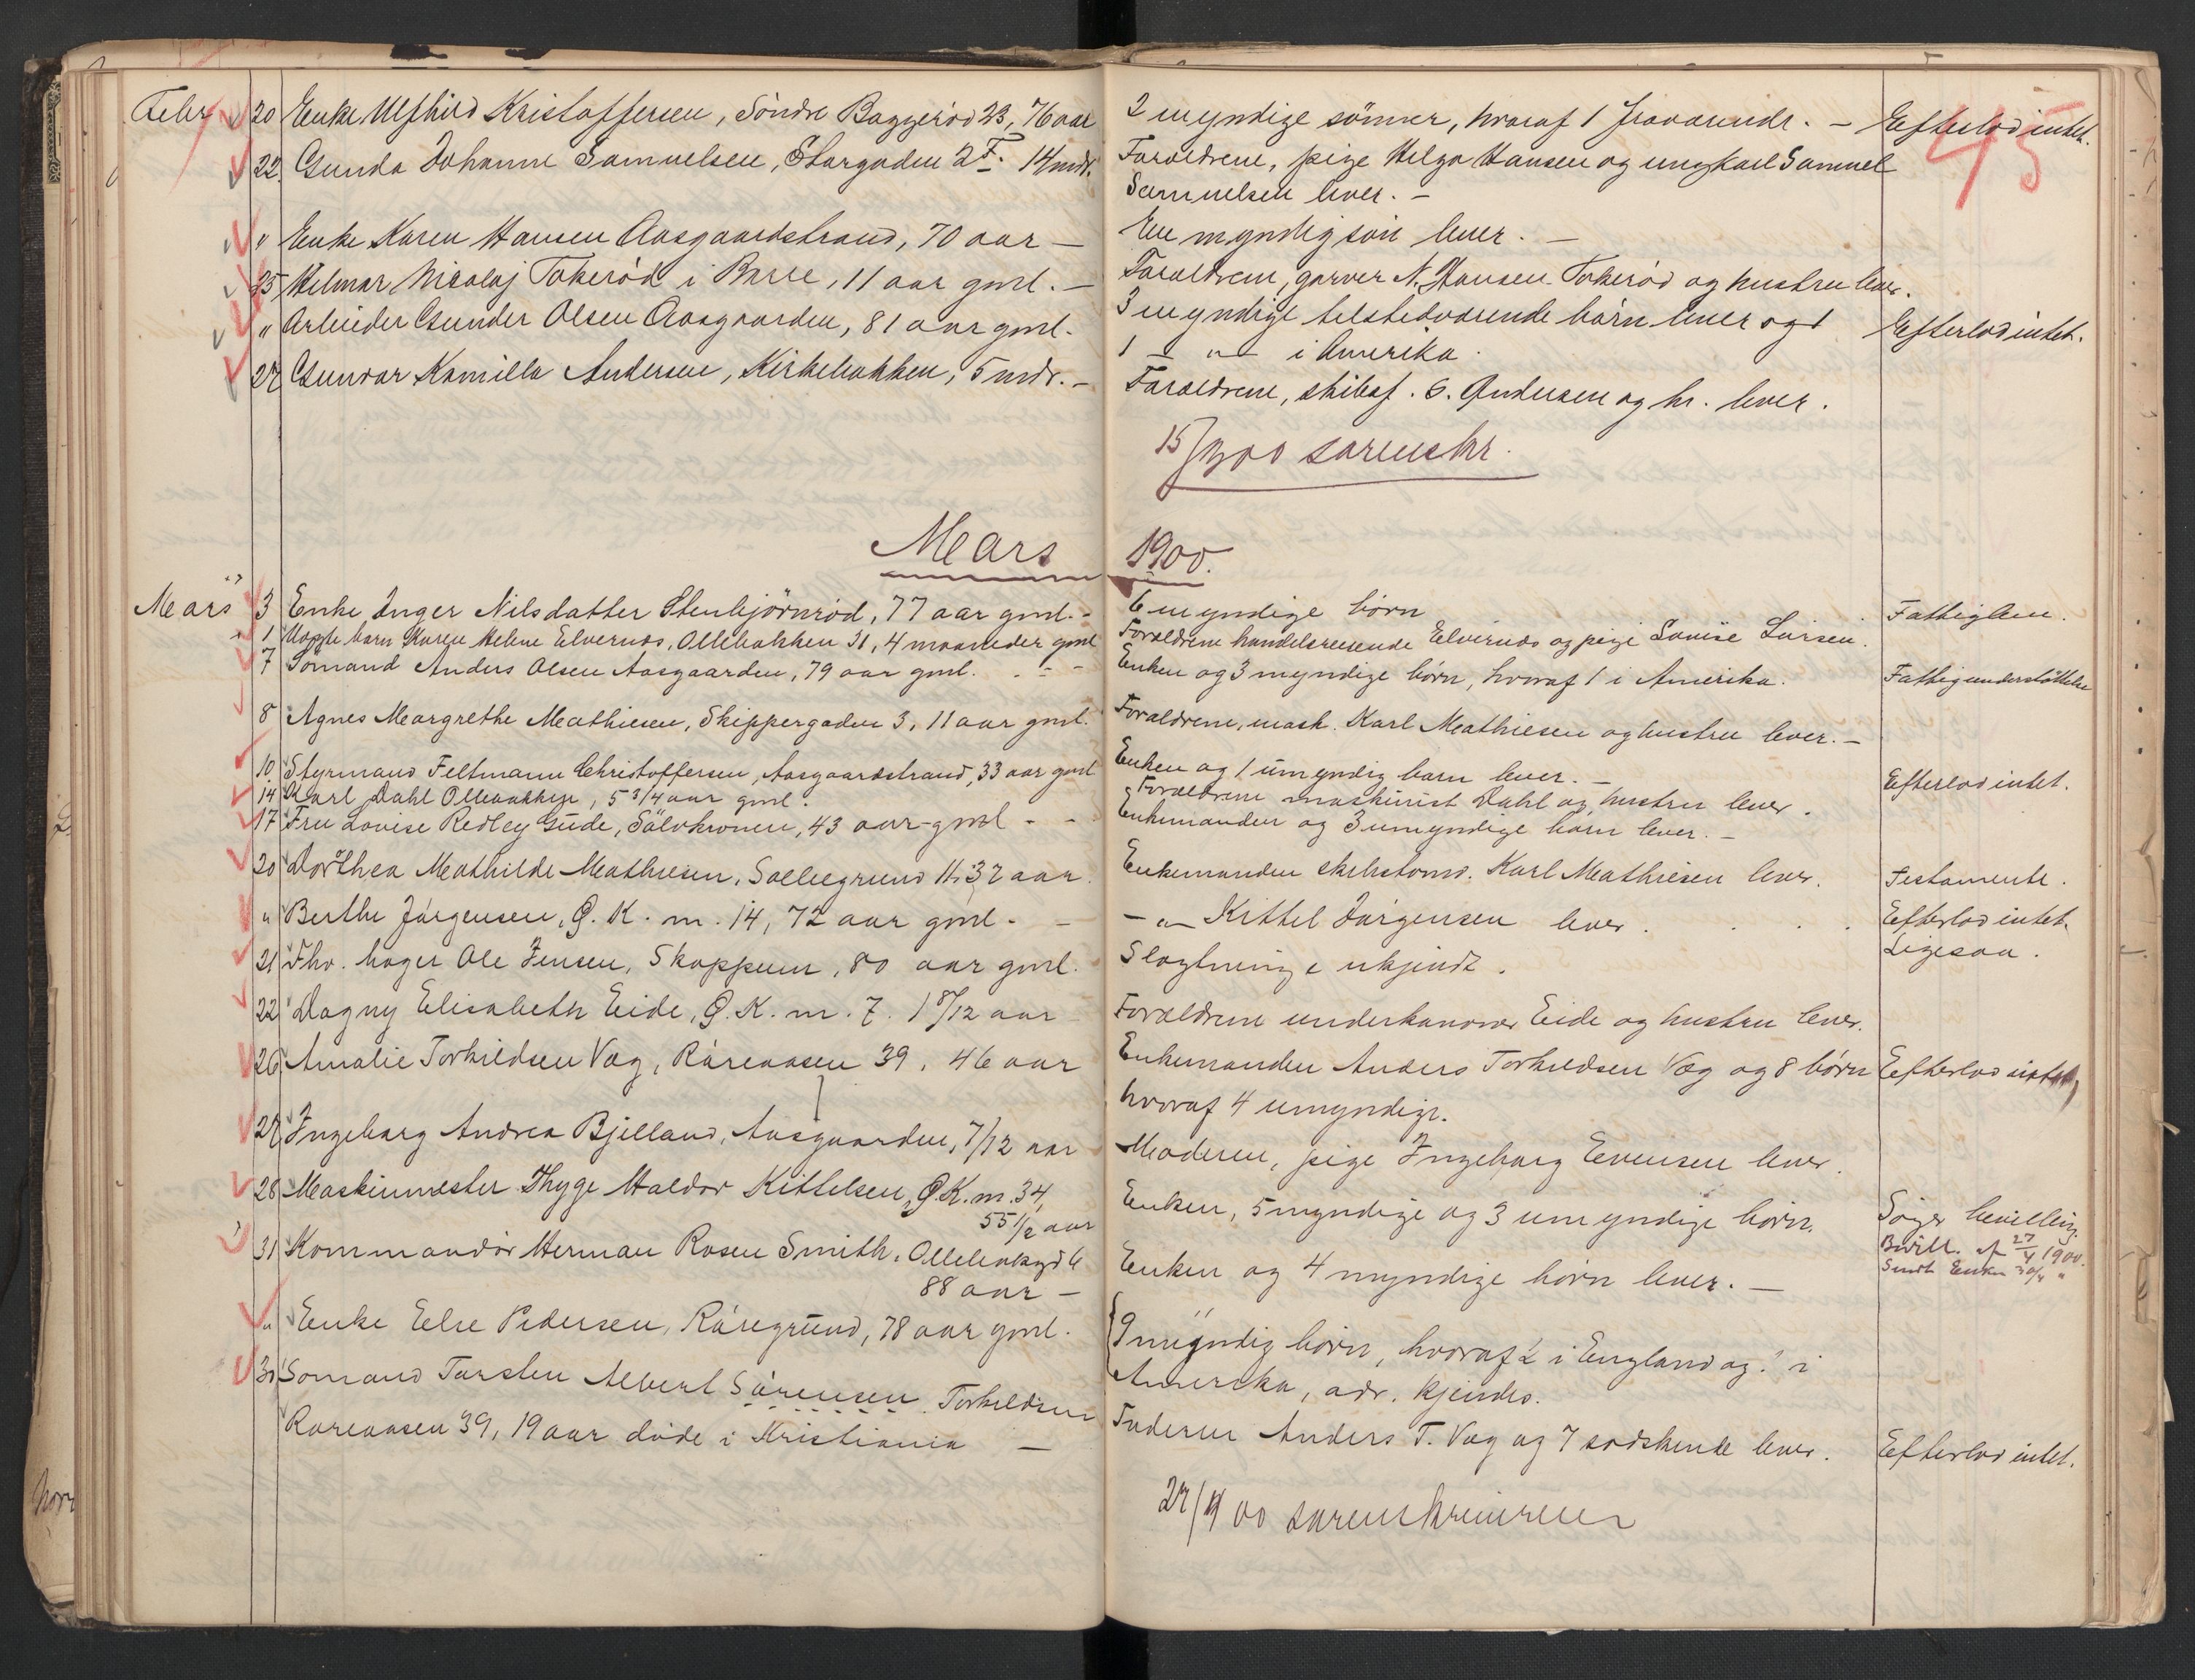 45
Febr. 20 Enke Ulfhild Kristoffersen, Søndre Baggerød 23, 76 aar
2 myndige sønner, hvoraf 1 fraværende. — Efterlod intet.
22. Gunda Johanne Samuelsen, Storgaden 2 F. 14 mdr.
Forældrene, pige Helga Hansen og ungkarl Samuel
Samuelsen lever. —
" Enke Karen Hansen Aasgaardstrand, 70 aar —
En myndig søn lever. —
25 Hilmar Nicolaj Tokerød i Borre, 11 aar gml. —
Forældrene, garver N. Hansen Tokerød og hustru lever.
" Arbeider Gunder Olsen Aasgaarden, 81 aar gml.
3 myndige tilstedværende børn lever og 1 Efterlod intet.
1 — " — i Amerika.
27 Gunvor Kamilla Andersen, Kirkebakken, 5 mdr. —
Forældrene, skibsf. C. Andersen og hr. lever.
15/3 00 sorenskr.
Mars 1900.
Mars 3 Enke Inger Nilsdatter Stenbjørnrød, 77 aar gml. —
6 myndige børn Fattiglem.
" 1 Uægte barn Karen Helene Elvernæs, Ollebakken 31, 4 maaneder gml
Forældrene handelsreisende Elvernæs og pige Lovise Larsen.
7 Sømand Anders Olsen Aasgaarden, 79 aar gml. - -
Enken og 3 myndige børn, hvoraf 1 i Amerika. Fattigunderstøttelse
8 Agnes Margrethe Mathiesen, Skippergaden 3, 11 aar gml.
Forældrene, mask. Karl Mathiesen og hustru lever. —
10 Styrmand Feltmann Christoffersen, Aasgaardstrand, 33 aar gml
Enken og 1 umyndig barn lever. — Efterlod intet.
14 Karl Dahl Ollebakken, 5 3/4 aar gml.
Forældrene maskinist Dahl og hustru lever.
17 Fru Lovise Redley Gude, Sølvkronen, 43 aar gml - -
Enkemanden og 3 umyndige børn lever. —
20 Dorthea Mathilde Mathiesen, Solliegrund 11, 37 aar.
Enkemanden skibstømr. Karl Mathiesen lever. Testamente.
" Berthe Jørgensen, Ø. K. m. 14, 72 aar gml. —
— " — Kittel Jørgensen lever . . . . Efterlod intet.
21 Fhv. bager Ole Jensen, Skoppum, 80 aar gml.
Slægtninge ukjendt. Ligesaa.
22 Dagny Elisabeth Eide, Ø. K. m. 7. 1 8/12 aar
Forældrene underkanoner Eide og hustru lever.
26 Amalie Torkildsen Væg, Røreaasen 39, 46 aar
Enkemanden Anders Torkildsen Væg og 8 børn Efterlod intet,
hvoraf 4 umyndige.
27 Ingeborg Andrea Bjelland, Aasgaarden, 7/12 aar
Moderen, pige Ingeborg Evensen lever.
28 Maskinmester Thyge Haldor Kittelsen, Ø. K. m. 34,
55 1/2 aar
Enken, 5 myndige og 3 umyndige børn. Søger bevilling.
Bevill. af 27/4 1900.
Sendt Enken 30/4 "
31 Kommandør Herman Rosen Smith, Ollebakgd 6
88 aar —
Enken og 4 myndige børn lever. —
" Enke Else Pedersen, Røregrund, 78 aar gml.
9 myndig børn, hvoraf 2 i England og 1 i
Amerika, adr. kjendes.
30 Sømand Torsten Albert Sørensen Torkildsen
Røreaasen 39, 19 aar døde i Kristiania —
Faderen Anders T. Væg og 7 sødskende lever. Efterlod intet.
27/4 00 sorenskriveren